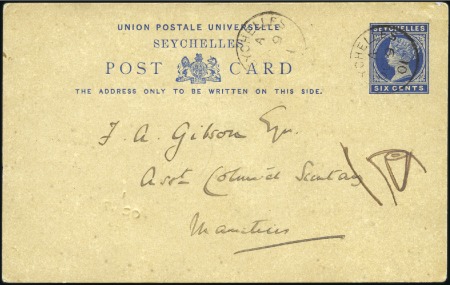 UNION POSTALE UNIVERSELLE
SEYCHELLES
POST CARD
THE ADDRESS ONLY TO BE WRITTEN ON THIS SIDE.
SEYCHELLES
SIX CENTS
SEYCHELLES
SEYCHELLES
F. A. Gibson Esq.
Asst Colonial Secretary
Mauritius